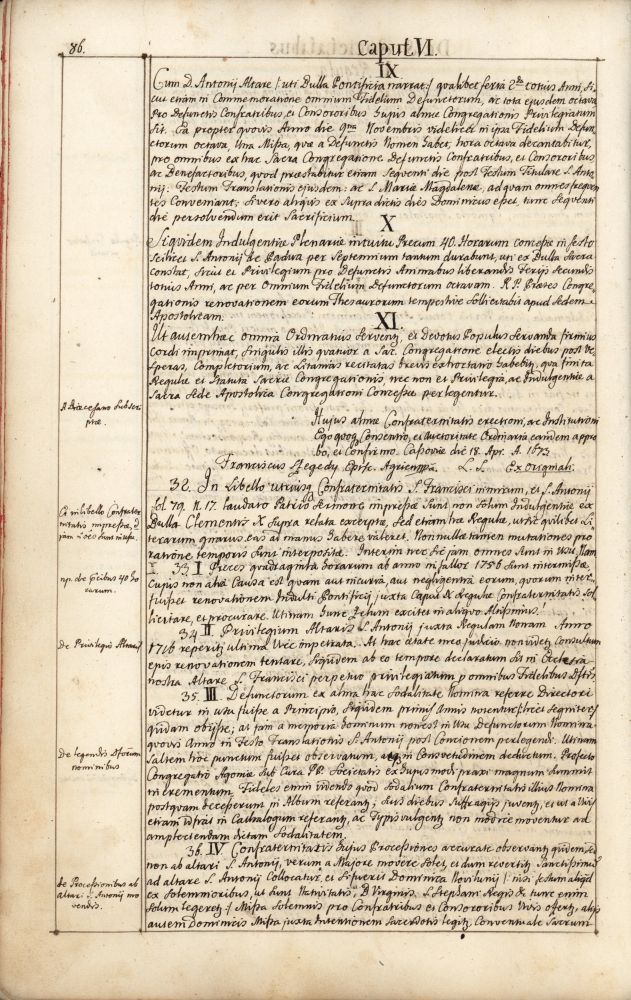 86.
Caput VI.
IX
Cum D. Antonij Altare /: uti Bulla Pontificia narrat :/ qualibet feria 2da totius Anni, si-
cut etiam in Commemoratione omnium Fidelium Defunctorum, ac tota ejusdem octava
Pro Defunctis Confratribus, et Consororibus hujus almae Congregationis Privilegiatum
sit. Ea propter quovis Anno die 9na Novembris videlicet in ipsa Fidelium Defun-
ctorum octava, Una Missa, quae a Defunctis Nomen habet, hora octava decantabitur,
pro omnibus ex hac Sacra Congregatione Defunctis Confratribus, et Consororibus
ac Benefactoribus, quod praestabitur etiam sequenti die post Festum Titulare S. Anto-
nij: Festum Translationis ejusdem: ac S. Mariae Magdalenae, ad quam omnes frequen-
tes Conveniant; si vero aliquis ex supra dictis dies Dominicus esset, tunc sequenti
die persolvendum erit Sacrificium.
X
Siquidem Indulgentiae Plenariae intuitu Precum 40. Horarum concessae in festo
scilicet S. Antonij de Padua per Septennium tantum durabunt, uti ex Bulla Sacra
constat, sicut et Privilegium pro Defunctis Animabus liberandis Ferijs secundis
totius Anni, ac per Omnium Fidelium Defunctorum octavam. R. P. Praeses Congre-
gationis renovationem eorum Thesaurorum tempestive sollicitabit apud Sedem
Apostolicam.
XI.
Ut autem haec omnia Ordinatius serventur, et devotus Populus servanda firmius
Cordi imprimat, singulis illis quatuor a Sac. Congregatione electis diebus post Ve-
speras, Completorium, ac Litanias recitatas brevis exhortatio habebitur, qua finita
Regulae et Statuta Sacrae Congregationis, nec non et Privilegia, ac Indulgentiae a
Sacra Sede Apostolica Congregationi Concessae perlegentur.
A Dioecesano Subscri-
ptae.
Hujus almae Confraternitatis erectioni, ac Institutioni
Ego quoque Consentio, et auctoritate Ordinaria eandem appro-
bo, et Confirmo. Cassoviae die 18. Apr. A. 1673
Franciscus Szegedy Episc. Agriensis. L. S. Ex Originali.
32. In Libello utriusque Confraternitatis S. Francisci nimirum, et S. Antonij
fol. 79. n. 17. laudato Patrio Sermone impressae sunt non solum Indulgentiae ex
Bulla Clementis X supra relata excerptae, sed etiam hae Regulae, ut sic quilibet Li-
terarum gnarus eas ad manus habere valeret. Nonnullae tamen mutationes pro
ratione temporis sunt interpositae. Interim nec sic jam omnes sunt in usu, Nam
Et in libello Confrater-
nitatis impressae,
jam oes sunt in usu.
33. I Preces quadraginta horarum ab anno ni fallor 1756 sunt intermissae,
Cujus non alia Causa est quam aut incuria, aut negligentia eorum, quorum inter-
fuisset renovationem Indulti Pontificij juxta Caput X Regulae Confraternitatis Sol-
licitare, et procurare. Utinam hunc zelum excitet in aliquo Altissimus!
np. de precibus 40 ho-
rarum.
34 II Privilegium Altaris S. Antonij juxta Regulam Nonam Anno
1716 reperitur ultima vice impetrata. At hac aetate meo judicio non videtur Consultum
ejus renovationem tentare, siquidem ab eo tempore declaratum sit in Ecclesia
nostra Altare S. Francisci perpetuo privilegiatum p omnibus Fidelibus Dftis.
de Privilegio Altaris
35. III Defunctorum ex alma hac Sodalitate Nomina referre Directori
videtur in usu fuisse a Principio, siquidem primis Annis notentur licet segniter
quidam obijsse; at jam a memoria hominum non est in usu Defunctorum Nomina
quovis Anno in Festo Translationis S. Antonij post Concionem perlegendi. Utinam
saltem hoc punctum fuisset observatum, atque in Consvetudinem deductum. Profecto
Congregatio Agoniae sub Cura PP. Societatis ex hujusmodi praxi magnum sumsit
incrementum, Fideles enim videndo quod Sodalium Confraternitatis illius Nomina
postquam decesserunt in Album referantur, suis diebus suffragijs juventur, et ut a Vivis
etiam id fiat in Cathalogum referantur, ac Typis vulgentur non modice moventur ad
amplectendam dictam Sodalitatem.
de legendis Dforum
nominibus
36. IV Confraternitatis hujus Processiones accurate observantur quidem, sed
non ab altari S. Antonij, verum a Majore movere solet, et dum revertitur Sanctissimum
ad altare S. Antonij Collocatur, et si fuerit Dominica Novilunij /: nisi festum aliquod
ex solemnioribus, ut sunt Nativitatis B. Virginis, S. Stephani Regis &c tunc enim
solum legeretur :/ Missa solemnis pro Confratribus et Consororibus Vivis offertur, alijs
autem Dominicis Missa juxta Intentionem Sacerdotis legitur, Conventuale Sacrum
de Processionibus ab
altari S. Antonij mo-
vendis.